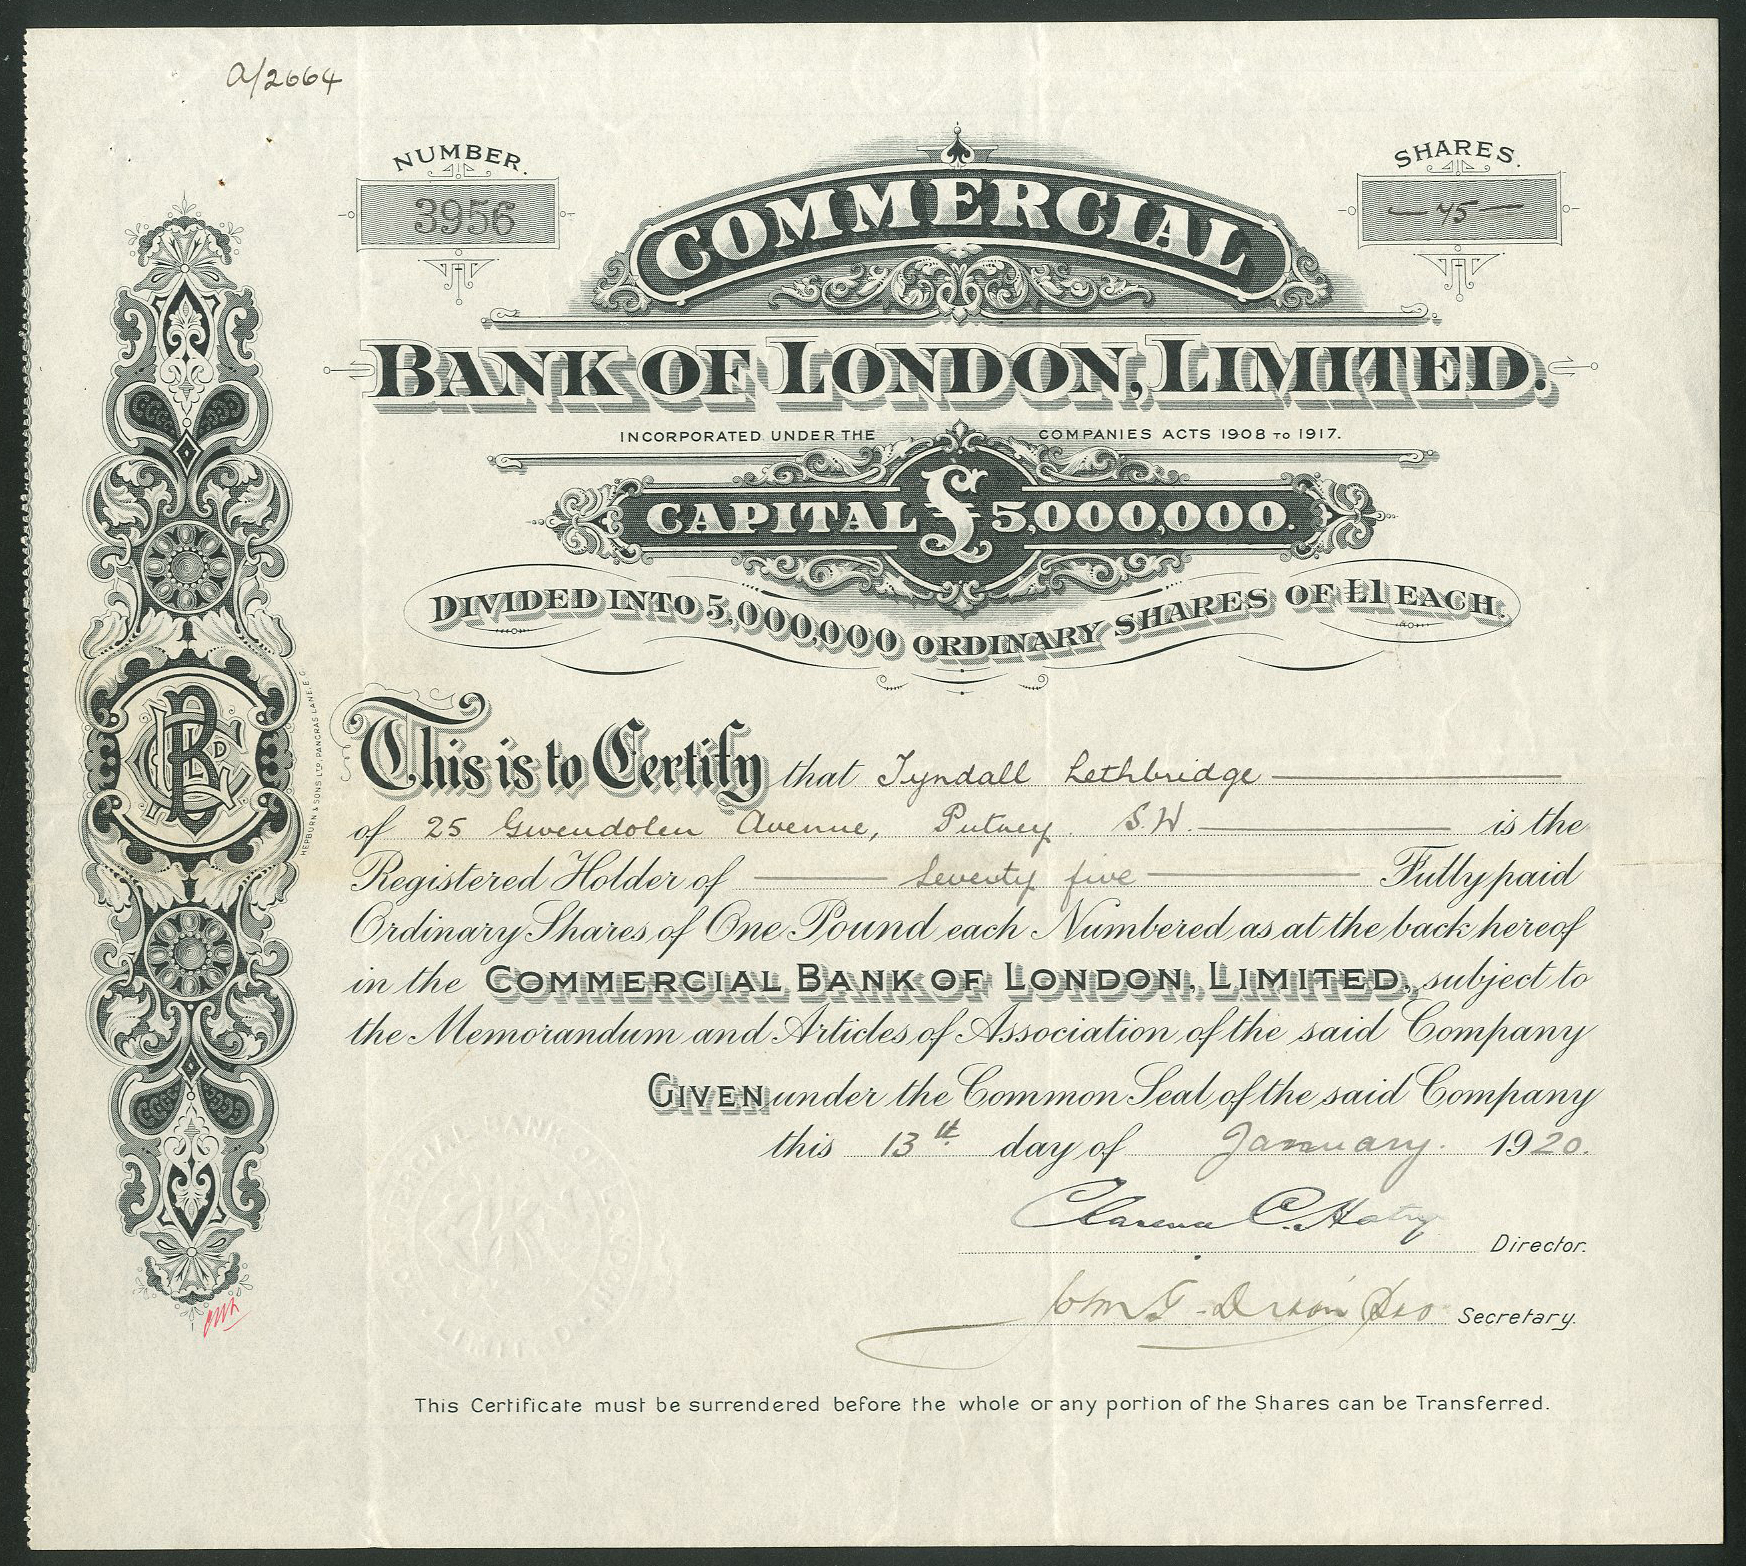 a/2664
NUMBER.
3956
SHARES.
— 75 —
COMMERCIAL
BANK OF LONDON, LIMITED.
INCORPORATED UNDER THE COMPANIES ACTS 1908 TO 1917.
CAPITAL £5,000,000.
DIVIDED INTO 5,000,000 ORDINARY SHARES OF £1 EACH.
HEPBURN & SONS LTD PANCRAS LANE. E.C.
This is to Certify that Tyndall Lethbridge
of 25 Gwendolen Avenue, Putney. S.W. is the
Registered Holder of Seventy five Fully paid
Ordinary Shares of One Pound each Numbered as at the back hereof
in the COMMERCIAL BANK OF LONDON, LIMITED, subject to
the Memorandum and Articles of Association of the said Company
GIVEN under the Common Seal of the said Company
this 13th day of January. 1920.
Clarence C. Hatry
Director.
John G. Dixon
Secretary.
COMMERCIAL BANK OF LONDON
LIMITED
This Certificate must be surrendered before the whole or any portion of the Shares can be Transferred.